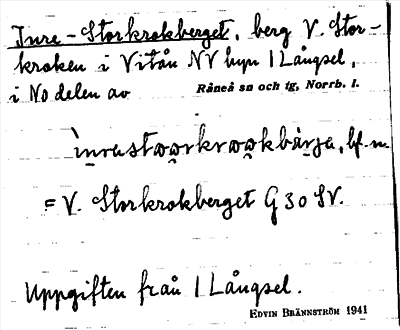 Inre-Storkrokberget, berg V. Stor-
kroken i Vitån NV byn 1 Långsel,
i No delen av Råneå sn och tg, Norrb. l.
ìnrastωo̭rkrωωkbàrja, bf. n.
= V. Storkrokberget G 30 SV.
Uppgiften från 1 Långsel.
EDVIN BRÄNNSTRÖM 1941